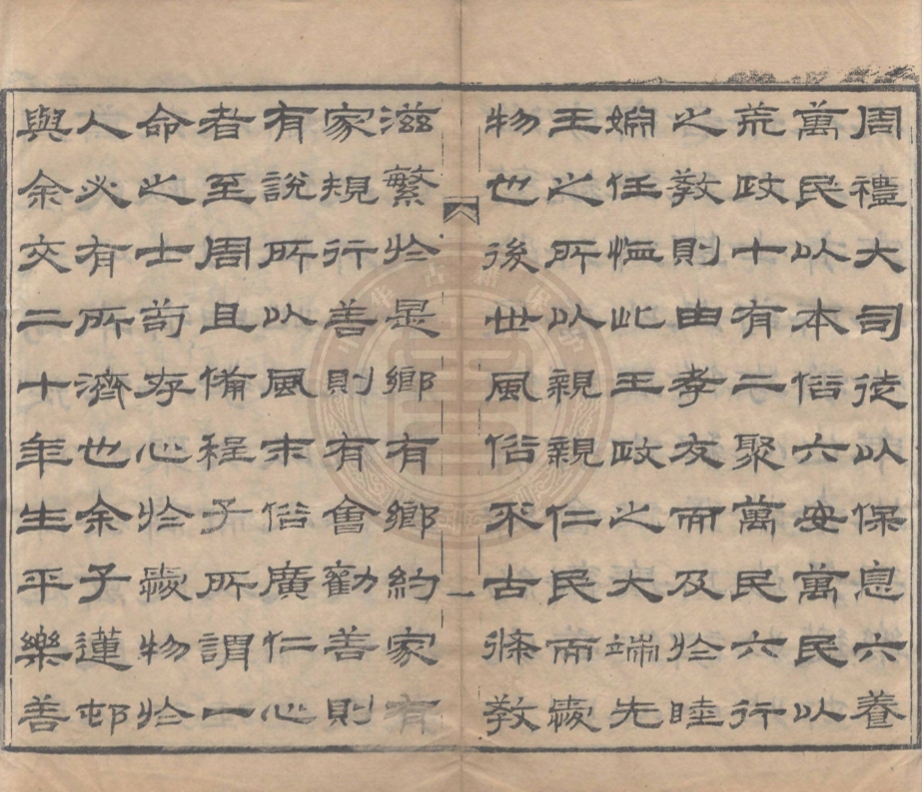 周禮大司徒以保息六養
萬民以本俗六安萬民以
荒政十有二聚萬民六行
之教則由孝友而及於睦
婣任恤此王政之大端先
王之所以親親仁民而愛
物也後世風俗不古條教
一
滋繁於是鄉有鄉約家有
家規行善則有會勸善則
有說所以風末俗廣仁心
者至周且備程子所謂一
命之士苟存心於愛物於
人必有所濟也余子蓮邨
與余交二十年生平樂善